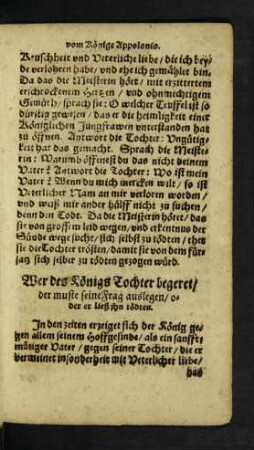 vom Könige Appolonio.
Keuschheit vnd Veterliche liebe / die ich bey⸗
de verlohren habe / vnd ehe ich gemählet bin.
Da das die Meisterin hört / mit erzittertem
erschrockenem Hertzen / vnd ohnmechtigem
Gemüth / sprach sie: O welcher Teuffel ist so
dürstig gewesen / das er die heimligkeit einer
Königlichen Jungfrawen vnterstanden hat
zu öffnen. Antwort die Tochter: Vngütig⸗
keit hat das gemacht. Sprach die Meiste⸗
rin: Warumb öffenest du das nicht deinem
Vater? Antwort die Tochter: Wo ist mein
Vater? Wenn du mich mercken wilt / so ist
Veterlicher Nam an mir verloren worden /
vnd waiß mir ander hülff nicht zu suchen /
denn den Todt. Da die Meisterin höret / das
sie von grossem leid wegen / vnd erkentnus der
Sünde wege sucht / sich selbst zu tödten / thet
sie die Tochter trösten / damit sie von dem für⸗
satz sich selber zu tödten gezogen würd.
Wer des Königs Tochter begeret /
der muste seine Frag auslegen / o⸗
der er ließ jhn tödten.
In den zeiten erzeiget sich der König ge⸗
gen allem seinem Hoffgesinde / als ein sanfft⸗
mütiger Vater / gegen seiner Tochter / die er
vermeinet in sonderheit mit Veterlicher liebe /
has